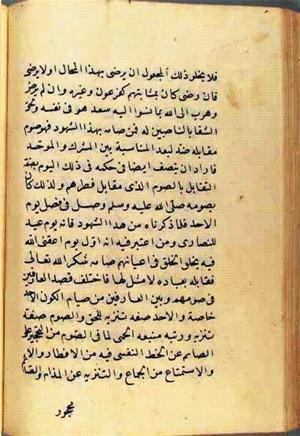 فلا يخلو ذلك المجعول ان يرضى بهذا المحال اولا يرضى
فان رضى كان بمثابتهم كفرعون وغيره وان لم يرض
وهرب الى الله مما نسبوا اليه سعد هو في نفسه ولحق
الشقا بالناصبين له فمن صامه بهذا الشهود فهو صوم
مقابلة ضد لبعد المناسبة بين المشرك والموحد
فاراد ان يتصف ايضا في حكمه في ذلك اليوم بصفة
التقابل بالصوم الذي مقابل فطرهم ولذلك كان
يصومه صلى الله عليه وسلم وصل في فضل يوم
الاحد فلما ذكرناه من هذا الشهود فانه يوم عيد
للنصارى ومن اعتبر فيه انه اول يوم اعتنى الله
فيه بخلق الخلق في اعيانهم صامه شكرا لله تعالى
فقابله بعبادة لا مثل لها فاختلف قصد العارفين
في صومهم ومن العارفين من صامه لكون الاحد
خاصة والاحد صفة تنزيه للحق والصوم صفة
تنزيه ورتبة منيعة الحمى لما في الصوم من التحجير على
الصائم عن الحظ النفسي فيه من الافطار والا
والاستمتاع من الجماع والتنزيه عن المذام والصائم
محجور